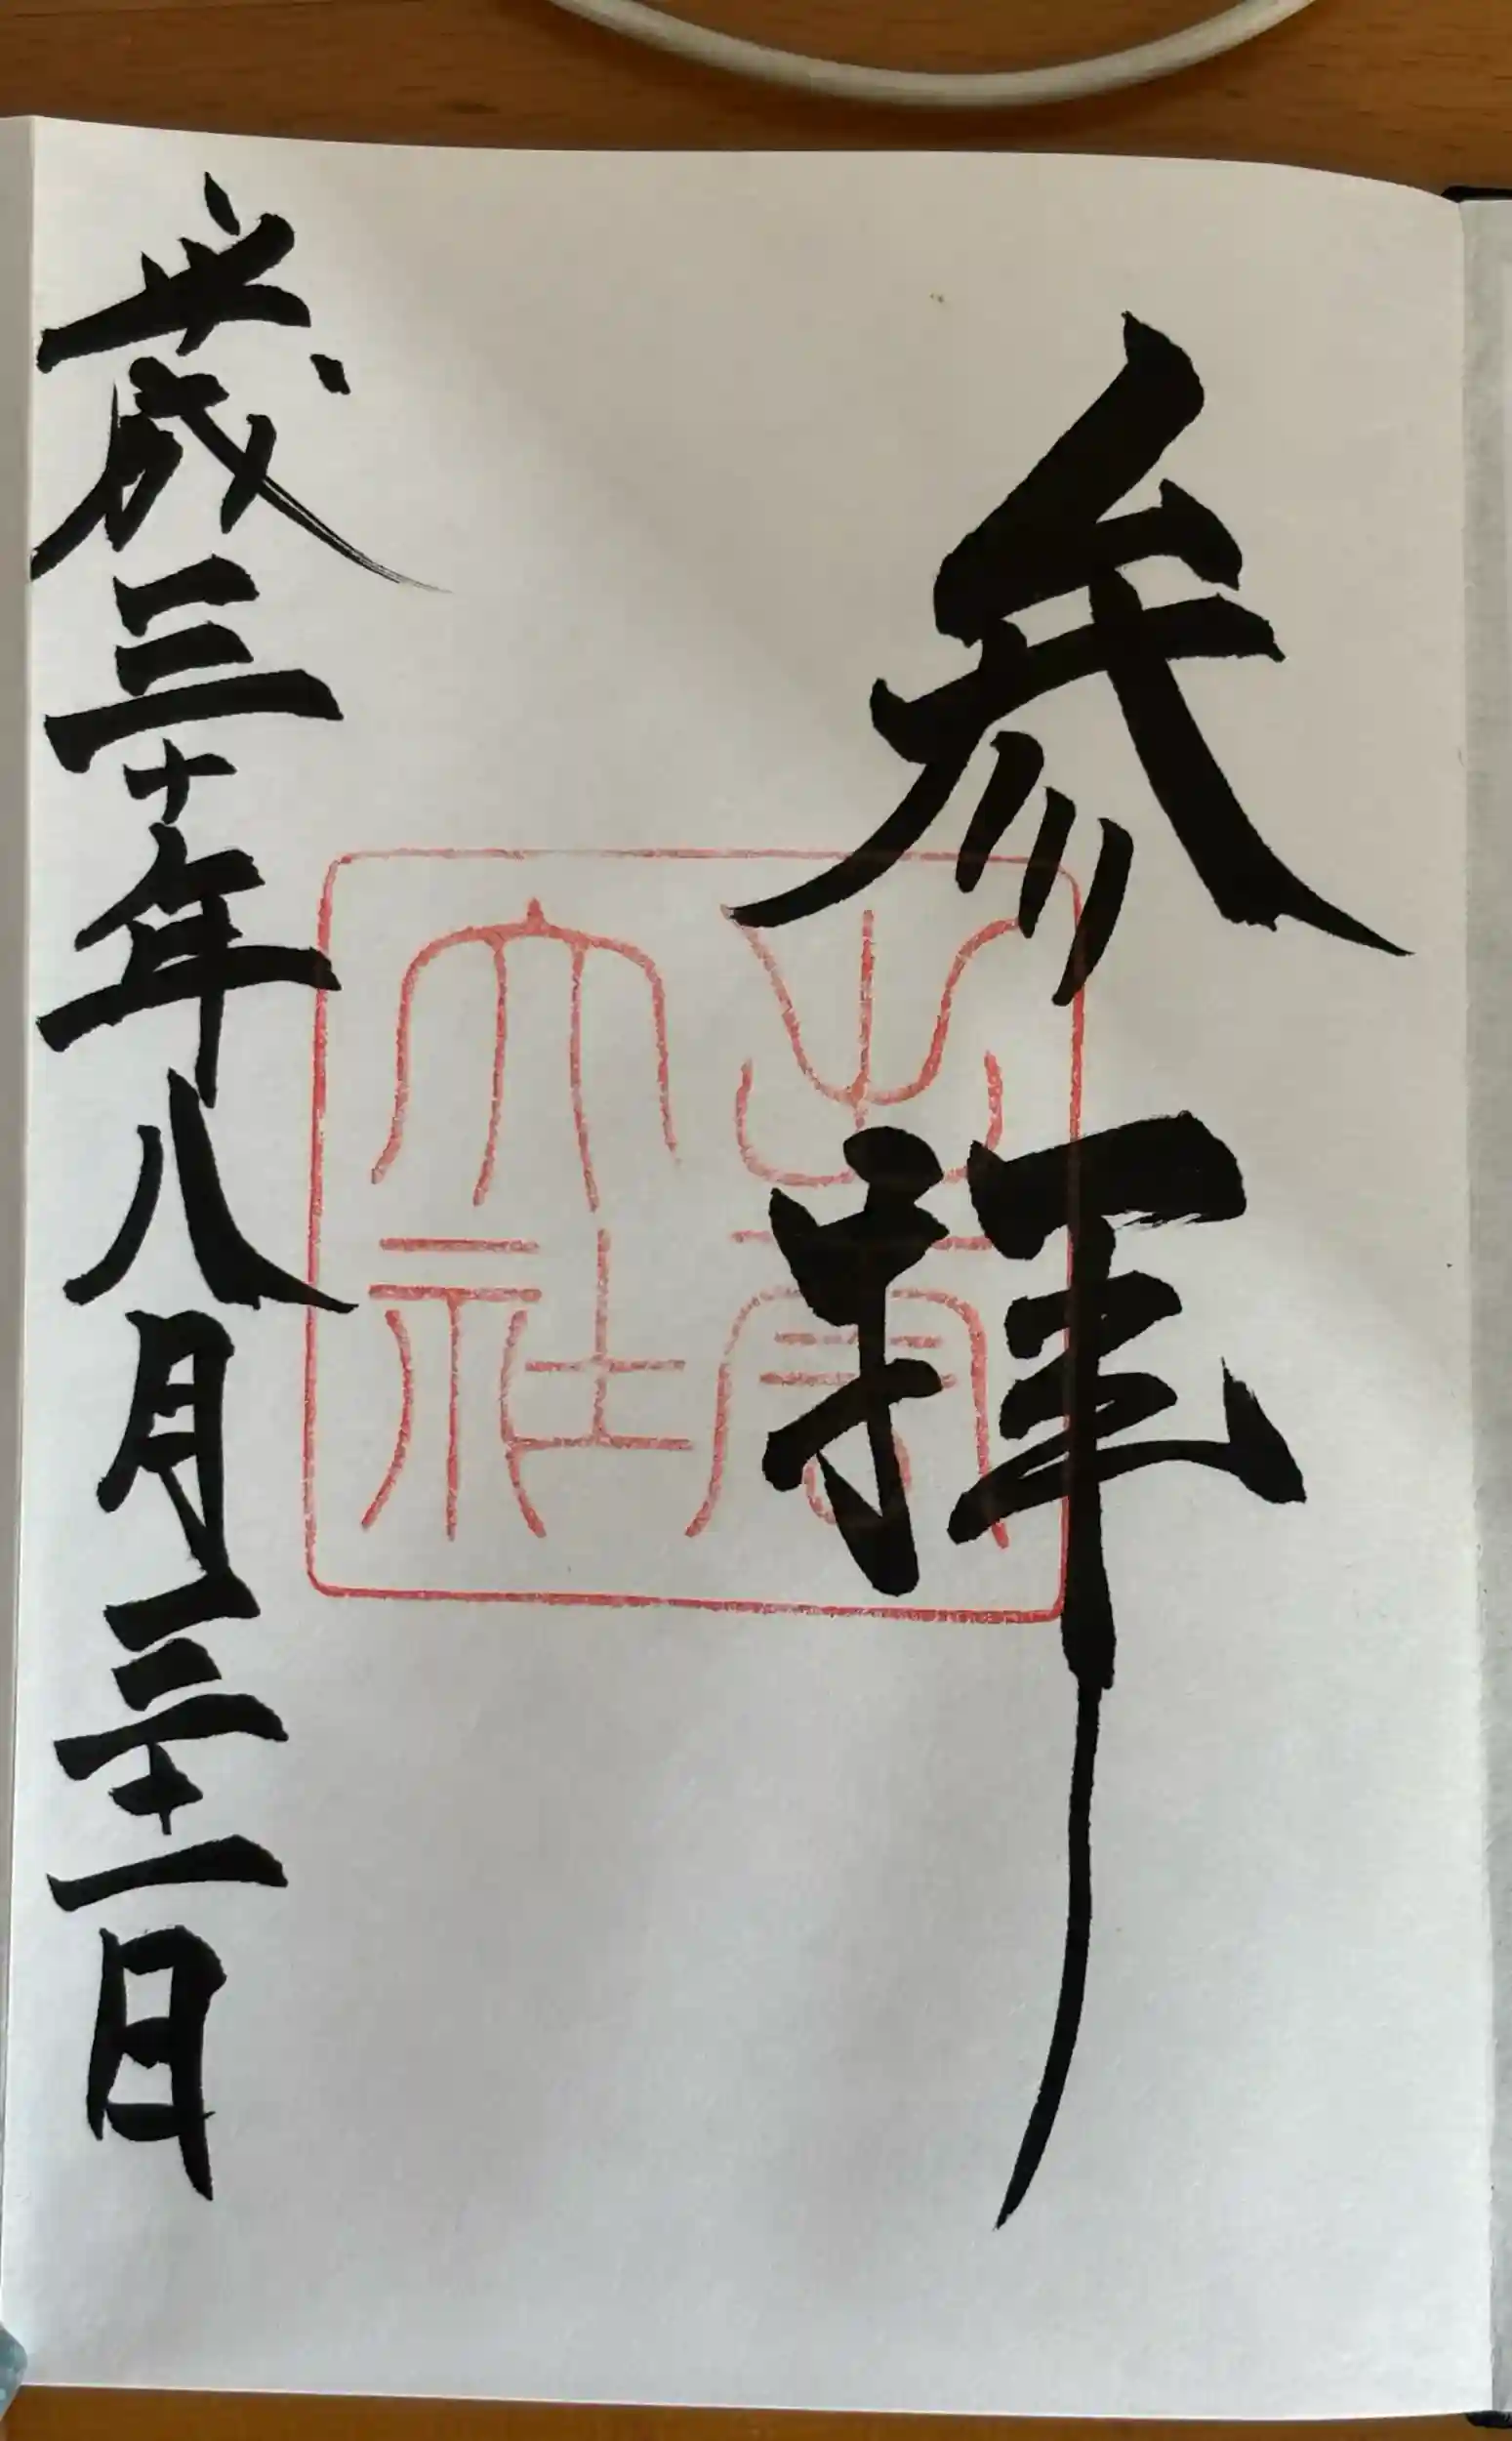 参拝
出雲大社
平成三十年八月三十一日